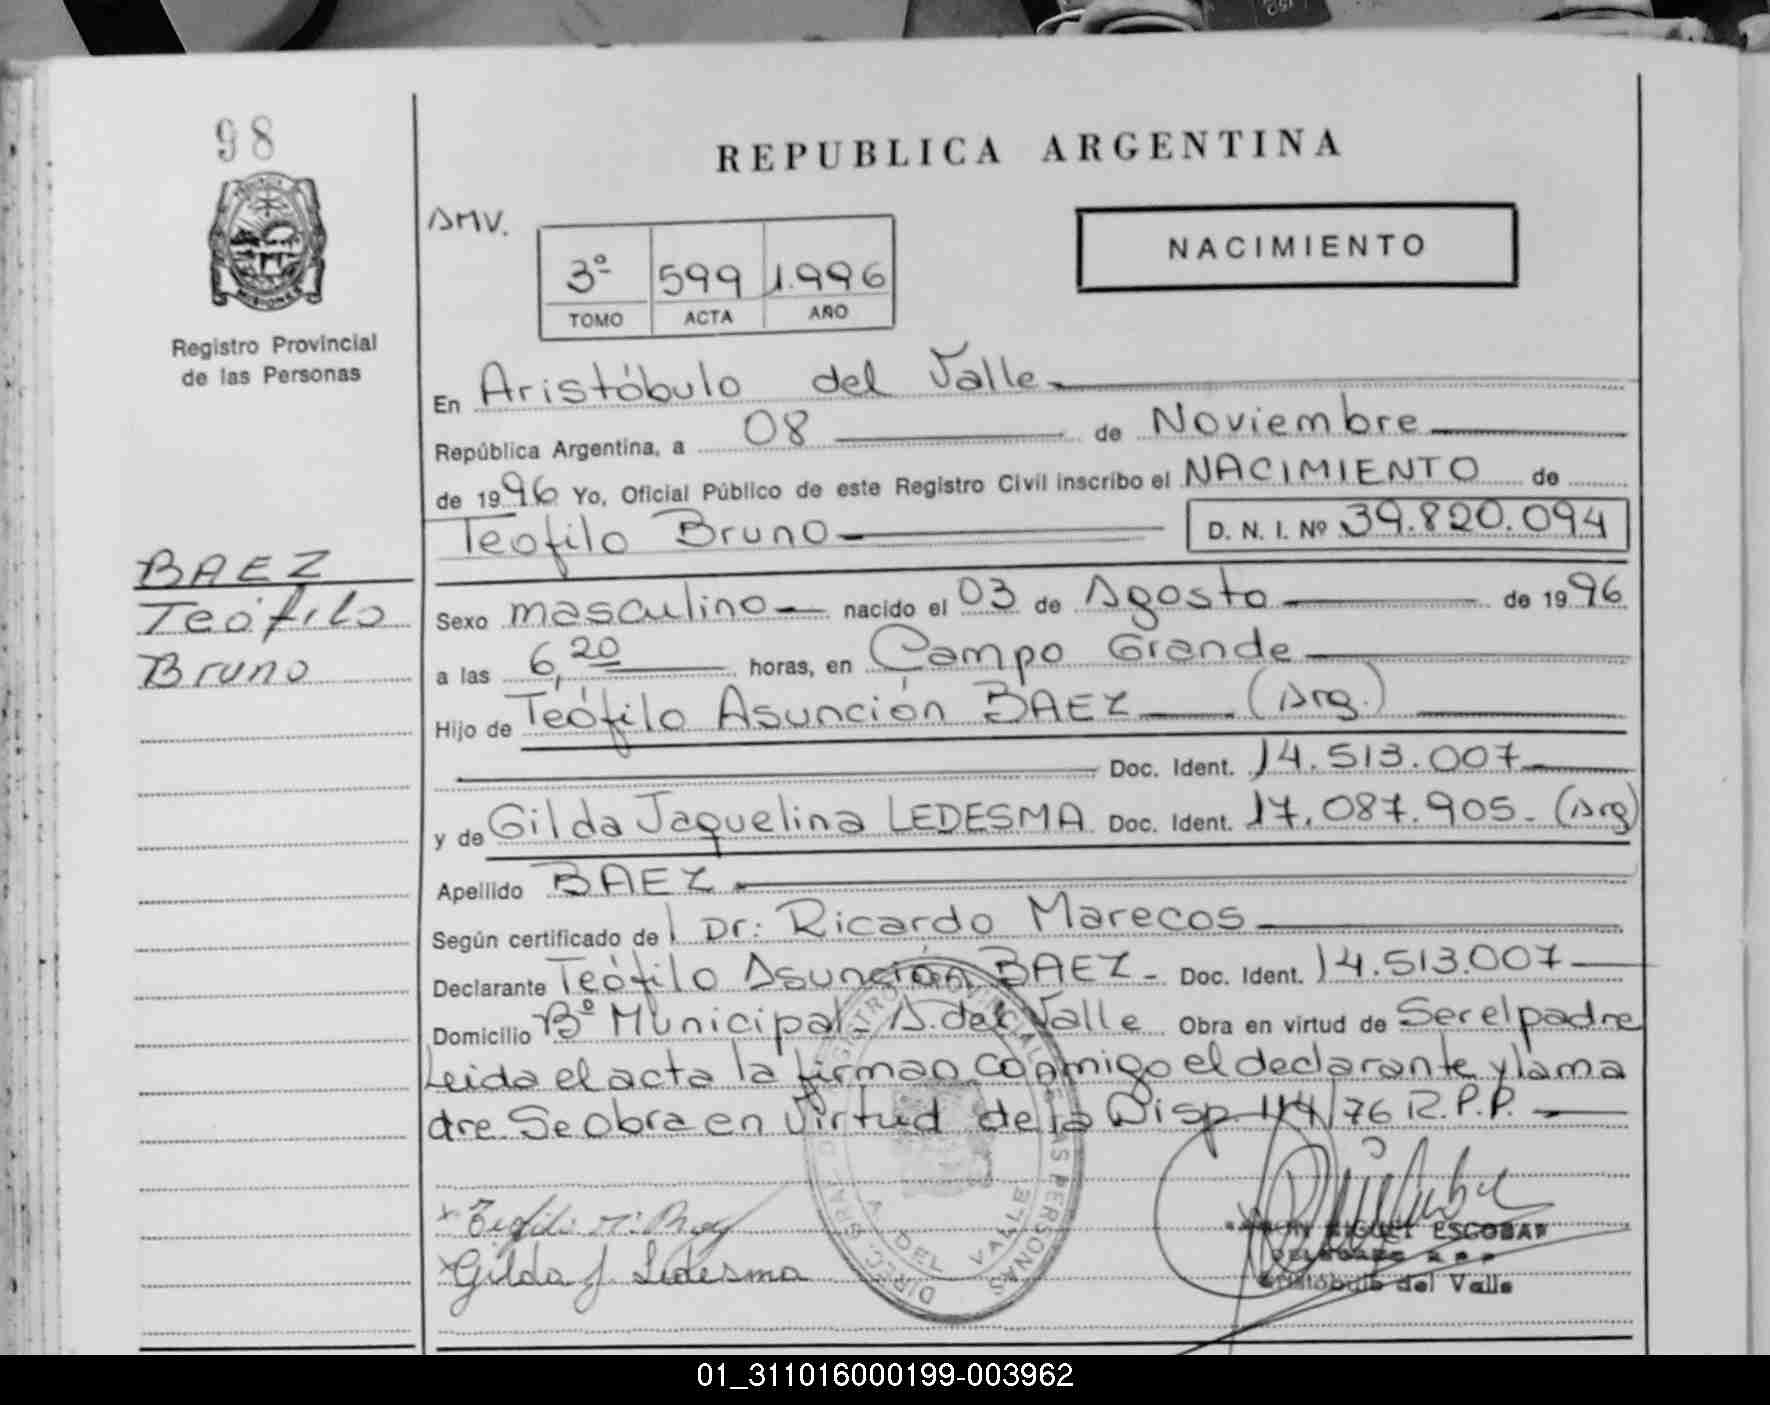 98
REPUBLICA ARGENTINA
AMV.
NACIMIENTO
3º 599 1.996
TOMO ACTA AÑO
Registro Provincial
de las Personas
En Aristóbulo del Valle
República Argentina, a 08 de Noviembre
de 1996 Yo, Oficial Público de este Registro Civil inscribo el NACIMIENTO de
Teofilo Bruno D. N. I. Nº 39.820.094
BAEZ
Teófilo
Bruno
Sexo masculino nacido el 03 de Agosto de 1996
a las 6,20 horas, en Campo Grande
Hijo de Teófilo Asunción BAEZ (Arg.)
Doc. Ident. 14.513.007
y de Gilda Jaquelina LEDESMA Doc. Ident. 17.087.905- (Arg)
Apellido BAEZ
Según certificado de Dr: Ricardo Marecos
Declarante Teófilo Asunción BAEZ- Doc. Ident. 14.513.007
Domicilio Bº Municipal- A. del Valle Obra en virtud de Ser el padre
Leida el acta la firman conmigo el declarante y la ma
dre. Se obra en virtud de la Disp. 114/76 R.P.P.
Gilda J. Ledesma
MIGUEL ESCOBAR
Aristóbulo del Valle
DEL VALLE
01_311016000199-003962